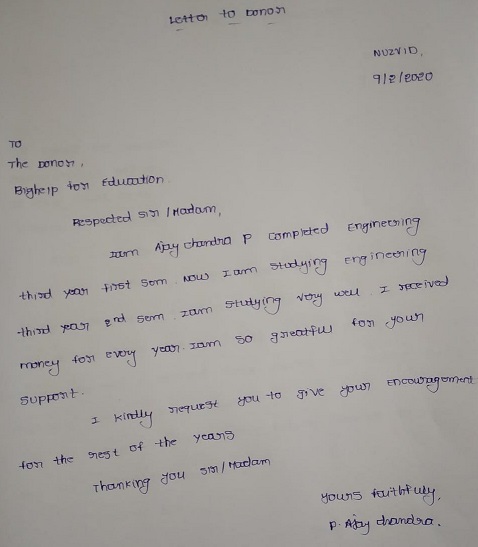 Letter to Donor
NUZVID,
9/2/2020
TO
The Donor,
Bighelp for Education.
Respected Sir / Madam,
Iam Ajay chandra P completed Engineering
third year first sem. Now Iam studying Engineering
third year 2nd sem. Iam studying very well. I received
money for evey year. Iam so greatful for your
Support.
I kindly request you to give your Encouragement
for the rest of the years
Thanking you sir/Madam
yours faithfully,
P. Ajay chandra.